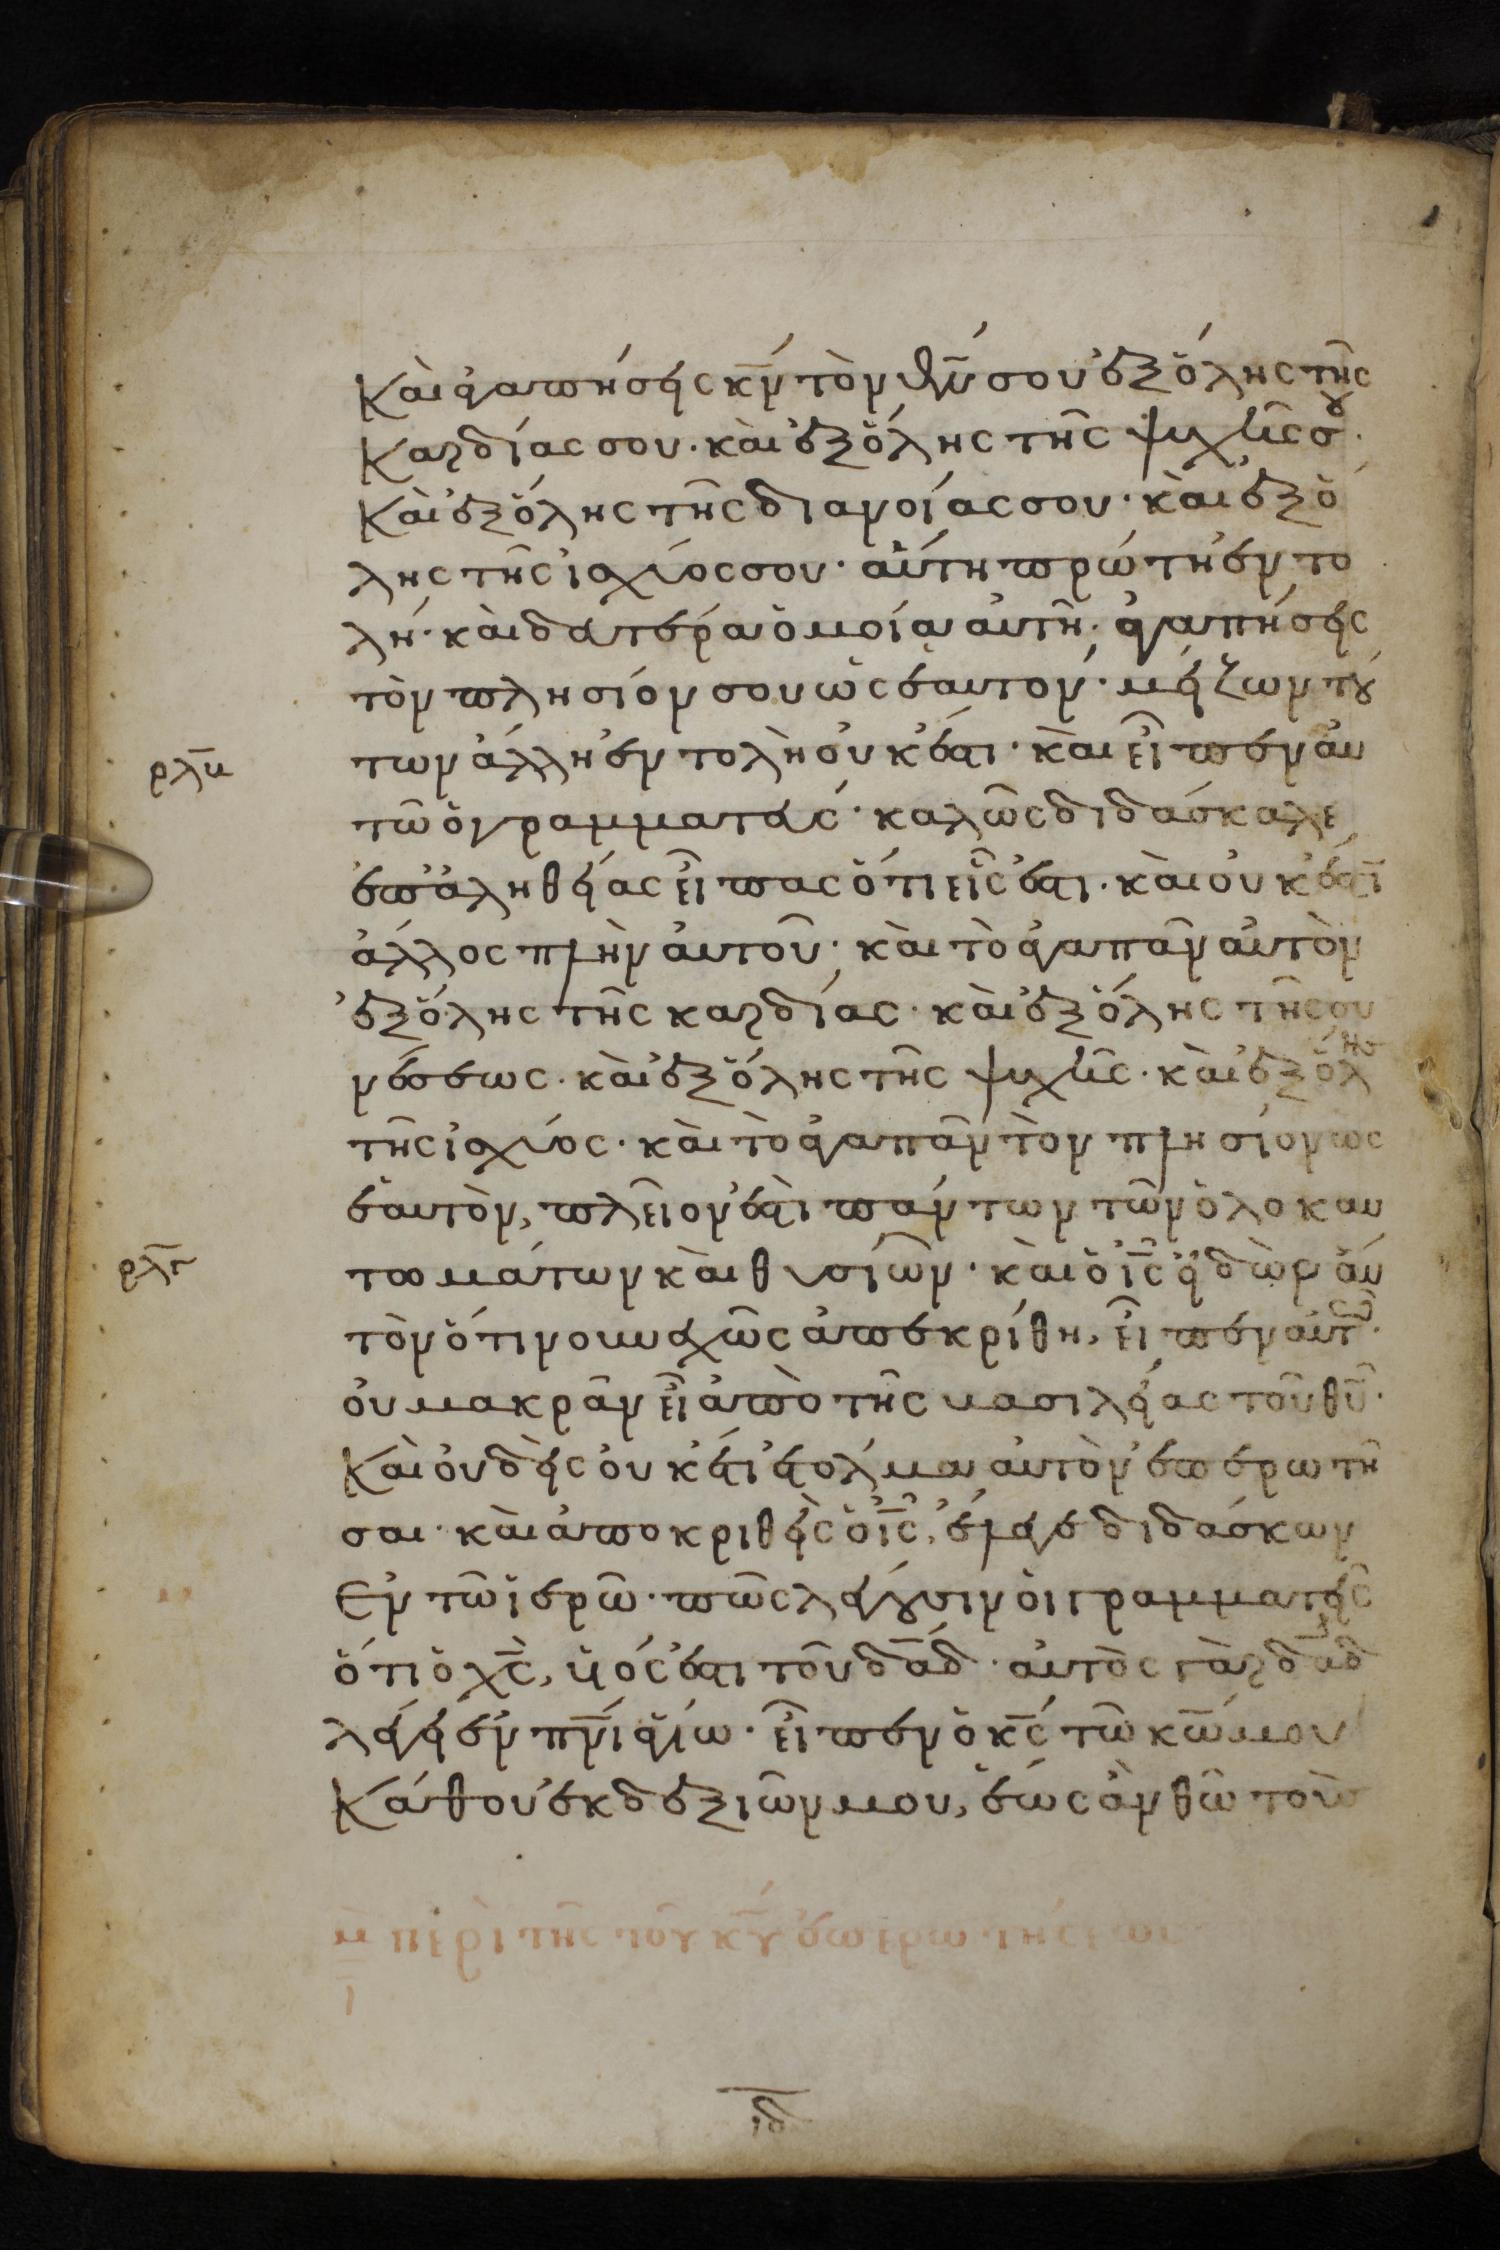 Καὶ ἀγαπήσεις κ̅ν̅ τὸν θ̅ν̅ σου ἐξ ὅλης τῆς
Καρδίας σου· καὶ ἐξ ὅλης τῆς ψυχῆς σου·
Καὶ ἐξ ὅλης τῆς διανοίας σου· καὶ ἐξ ὅ
λης τῆς ἰσχύος σου· αὕτη πρώτη ἐντο
λή· καὶ δευτέρα ὁμοία αὐτῆ· ἀγαπήσεις
τὸν πλησίον σου ὡς ἑαυτόν· μείζων τού
ρλβ
των ἄλλη ἐντολὴ οὐκ ἔστι· καὶ εἶπεν αὐ
τῶ ὁ γραμματεύς· καλῶς διδάσκαλε
ἐπ' ἀληθείας εἶπας ὅτι εἷς ἐστι· καὶ οὐκ ἔστιν
ἄλλος πλὴν αὐτοῦ· καὶ τὸ ἀγαπᾶν αὐτὸν
ἐξ ὅλης τῆς καρδίας· καὶ ἐξ ὅλης τῆς συ
νέσεως· καὶ ἐξ ὅλης τῆς ψυχῆς· καὶ ἐξ ὅλης
τῆς ἰσχύος· καὶ τὸ ἀγαπᾶν τὸν πλησίον ὡς
ἑαυτὸν, πλεῖον ἐστὶ πάντων τῶν ὁλοκαυ
ρλγ
τωμάτων καὶ θυσιῶν· καὶ ὁ ι̅ς̅ ἰδὼν αὐ
τὸν ὅτι νουνεχῶς ἀπεκρίθη, εἶπεν αὐτῶ·
οὐ μακρὰν εἶ ἀπὸ τῆς βασιλείας τοῦ θ̅υ̅·
Καὶ οὐδεὶς οὐκ ἔτι ἐτόλμα αὐτὸν ἐπερωτῆ
σαι· καὶ ἀποκριθεὶς ὁ ι̅ς̅, ἔλεγε διδάσκων
Ἐν τῶ ἱερῶ· πῶς λέγουσιν οἱ γραμματεῖς
ὅτι ὁ χ̅ς̅, υἱός ἐστι τοῦ δ̅α̅δ̅· αὐτὸς γὰρ δ̅α̅δ̅
λέγει ἐν π̅ν̅ι̅ ἁγίω· εἶπεν ὁ κ̅ς̅ τῶ κ̅ω̅ μου
Κάθου ἐκ δεξιῶν μου, ἕως ἂν θῶ τοὺς
μ περὶ τῆς τοῦ κ̅υ̅ ἐπερωτήσεως
ιδ